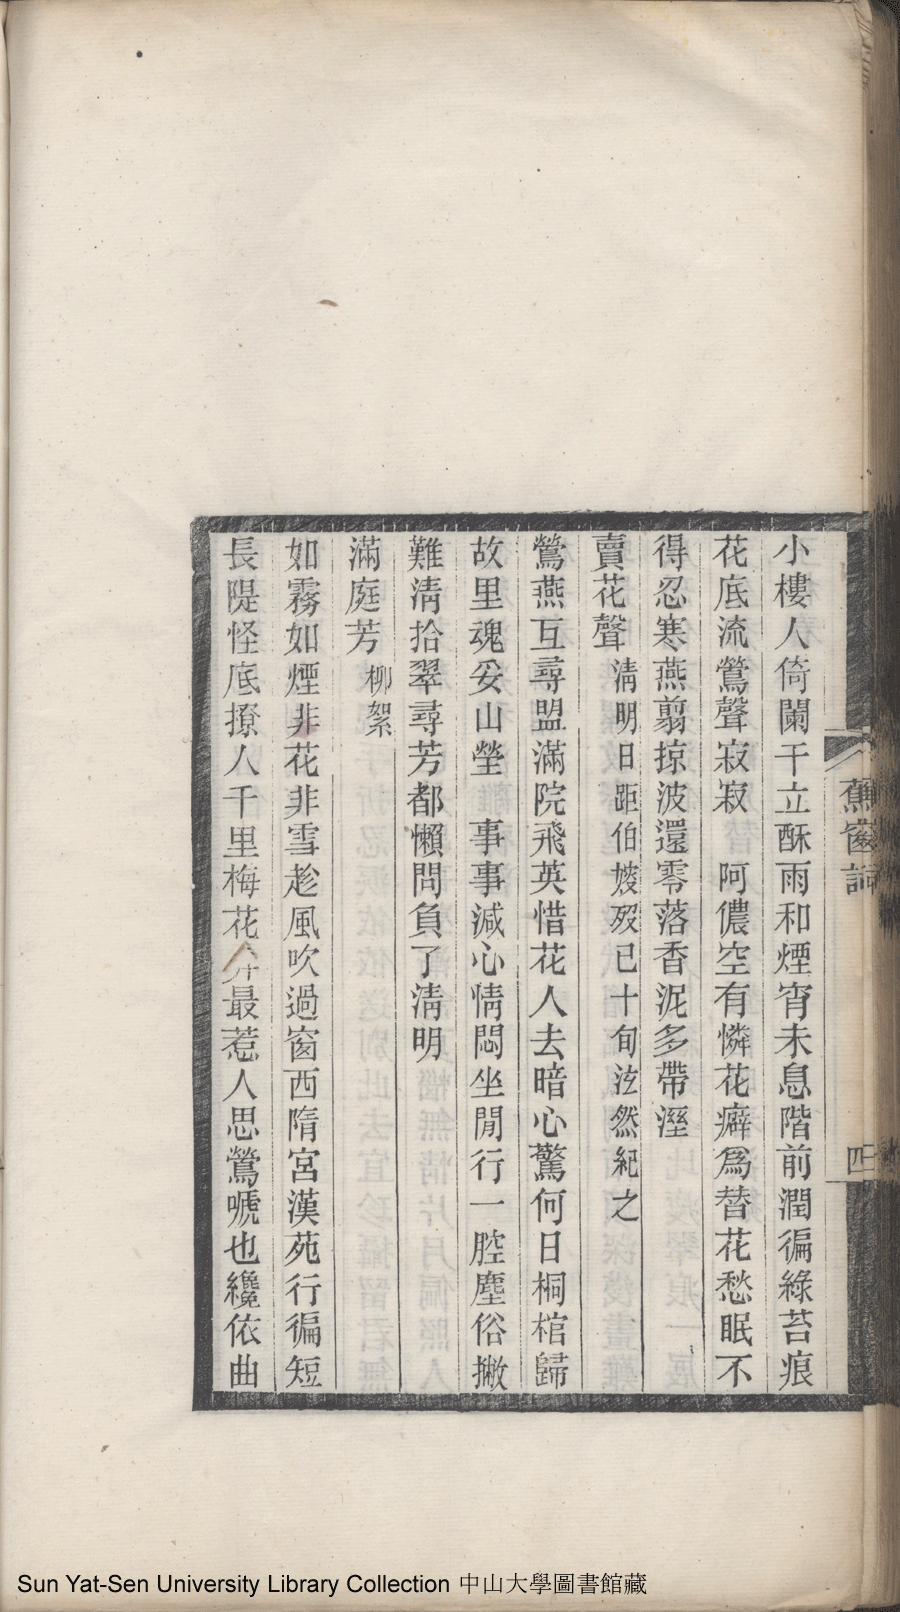 小樓人倚闌干立酥雨和煙宵未息階前潤徧綠苔痕
花底流鶯聲寂寂　阿儂空有憐花癖爲替花愁眠不
得忍寒燕翦掠波還零落香泥多帶溼
賣花聲　清明日距伯媭歿已十旬泫然紀之
鶯燕互尋盟滿院飛英惜花人去暗心驚何日桐棺歸
故里魂妥山塋　事事減心情悶坐閒行一腔塵俗撇
難清拾翠尋芳都懶問負了清明
滿庭芳　柳絮
如霧如煙非花非雪趁風吹過窗西隋宮漢苑行徧短
長隄怪底撩人千里梅花最惹人思鶯嗁也纔依曲
蕉窗詞
四
Sun Yat-Sen University Library Collection 中山大學圖書館藏